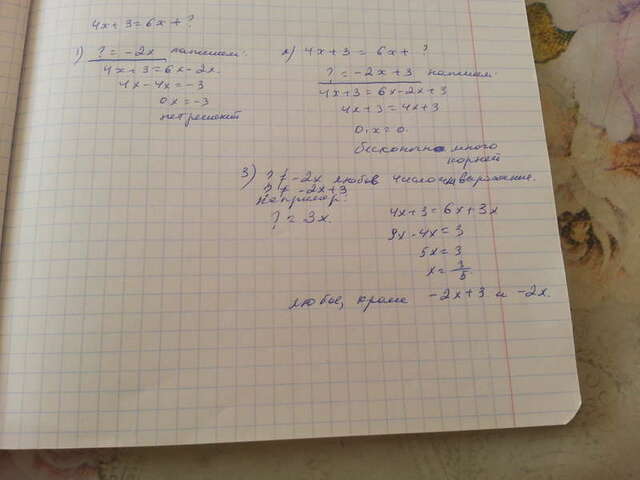 4x+3=6x+?
1) ?=-2x напишем:
4x+3=6x-2x
4x-4x=-3
0x=-3
нет решений
2) 4x+3=6x+?
?=-2x+3 напишем:
4x+3=6x-2x+3
4x+3=4x+3
0·x=0.
бесконечно много
корней
3) ?≠-2x любое число или выражение.
?≠-2x+3
Например:
?=3x.
4x+3=6x+3x
9x-4x=3
5x=3
x=3/5
любое, кроме -2x+3 и -2x.